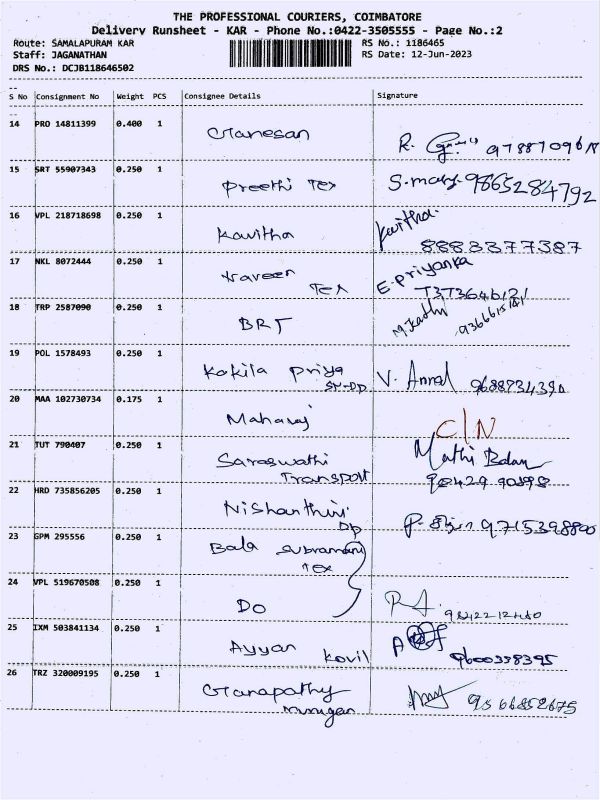 THE PROFESSIONAL COURIERS, COIMBATORE
Delivery Runsheet - KAR - Phone No.:0422-3505555 - Page No.:2
Route: SAMALAPURAM KAR RS No.: 1186465
Staff: JAGANATHAN RS Date: 12-Jun-2023
DRS No.: DCJB118646502
S No Consignment No Weight PCS Consignee Details Signature
14 PRO 14811399 0.400 1 Ganesan R.
15 SRT 55907343 0.250 1 Preethi Tex S. mary 9865284792
16 VPL 218718698 0.250 1 Kavitha Kavitha
8883377387
17 NKL 8072444 0.250 1 Naveen E. priyanka
Tex
18 TRP 2587090 0.250 1 BRT M. Kathi
19 POL 1578493 0.250 1 Kokila Priya V.
20 MAA 102730734 0.175 1 Maharaj C/N
21 TUT 790407 0.250 1 Saraswathi Mathi
Transport
22 HRD 735856205 0.250 1 Nishanthini P. 9715398890
DP
23 GPM 295556 0.250 1 Bala Subramani
Tex
24 VPL 519670508 0.250 1 Do
25 IXM 503841134 0.250 1 Ayyan Kovil 9600338395
26 TRZ 320009195 0.250 1 Ganapathy 9566852675
Murugan